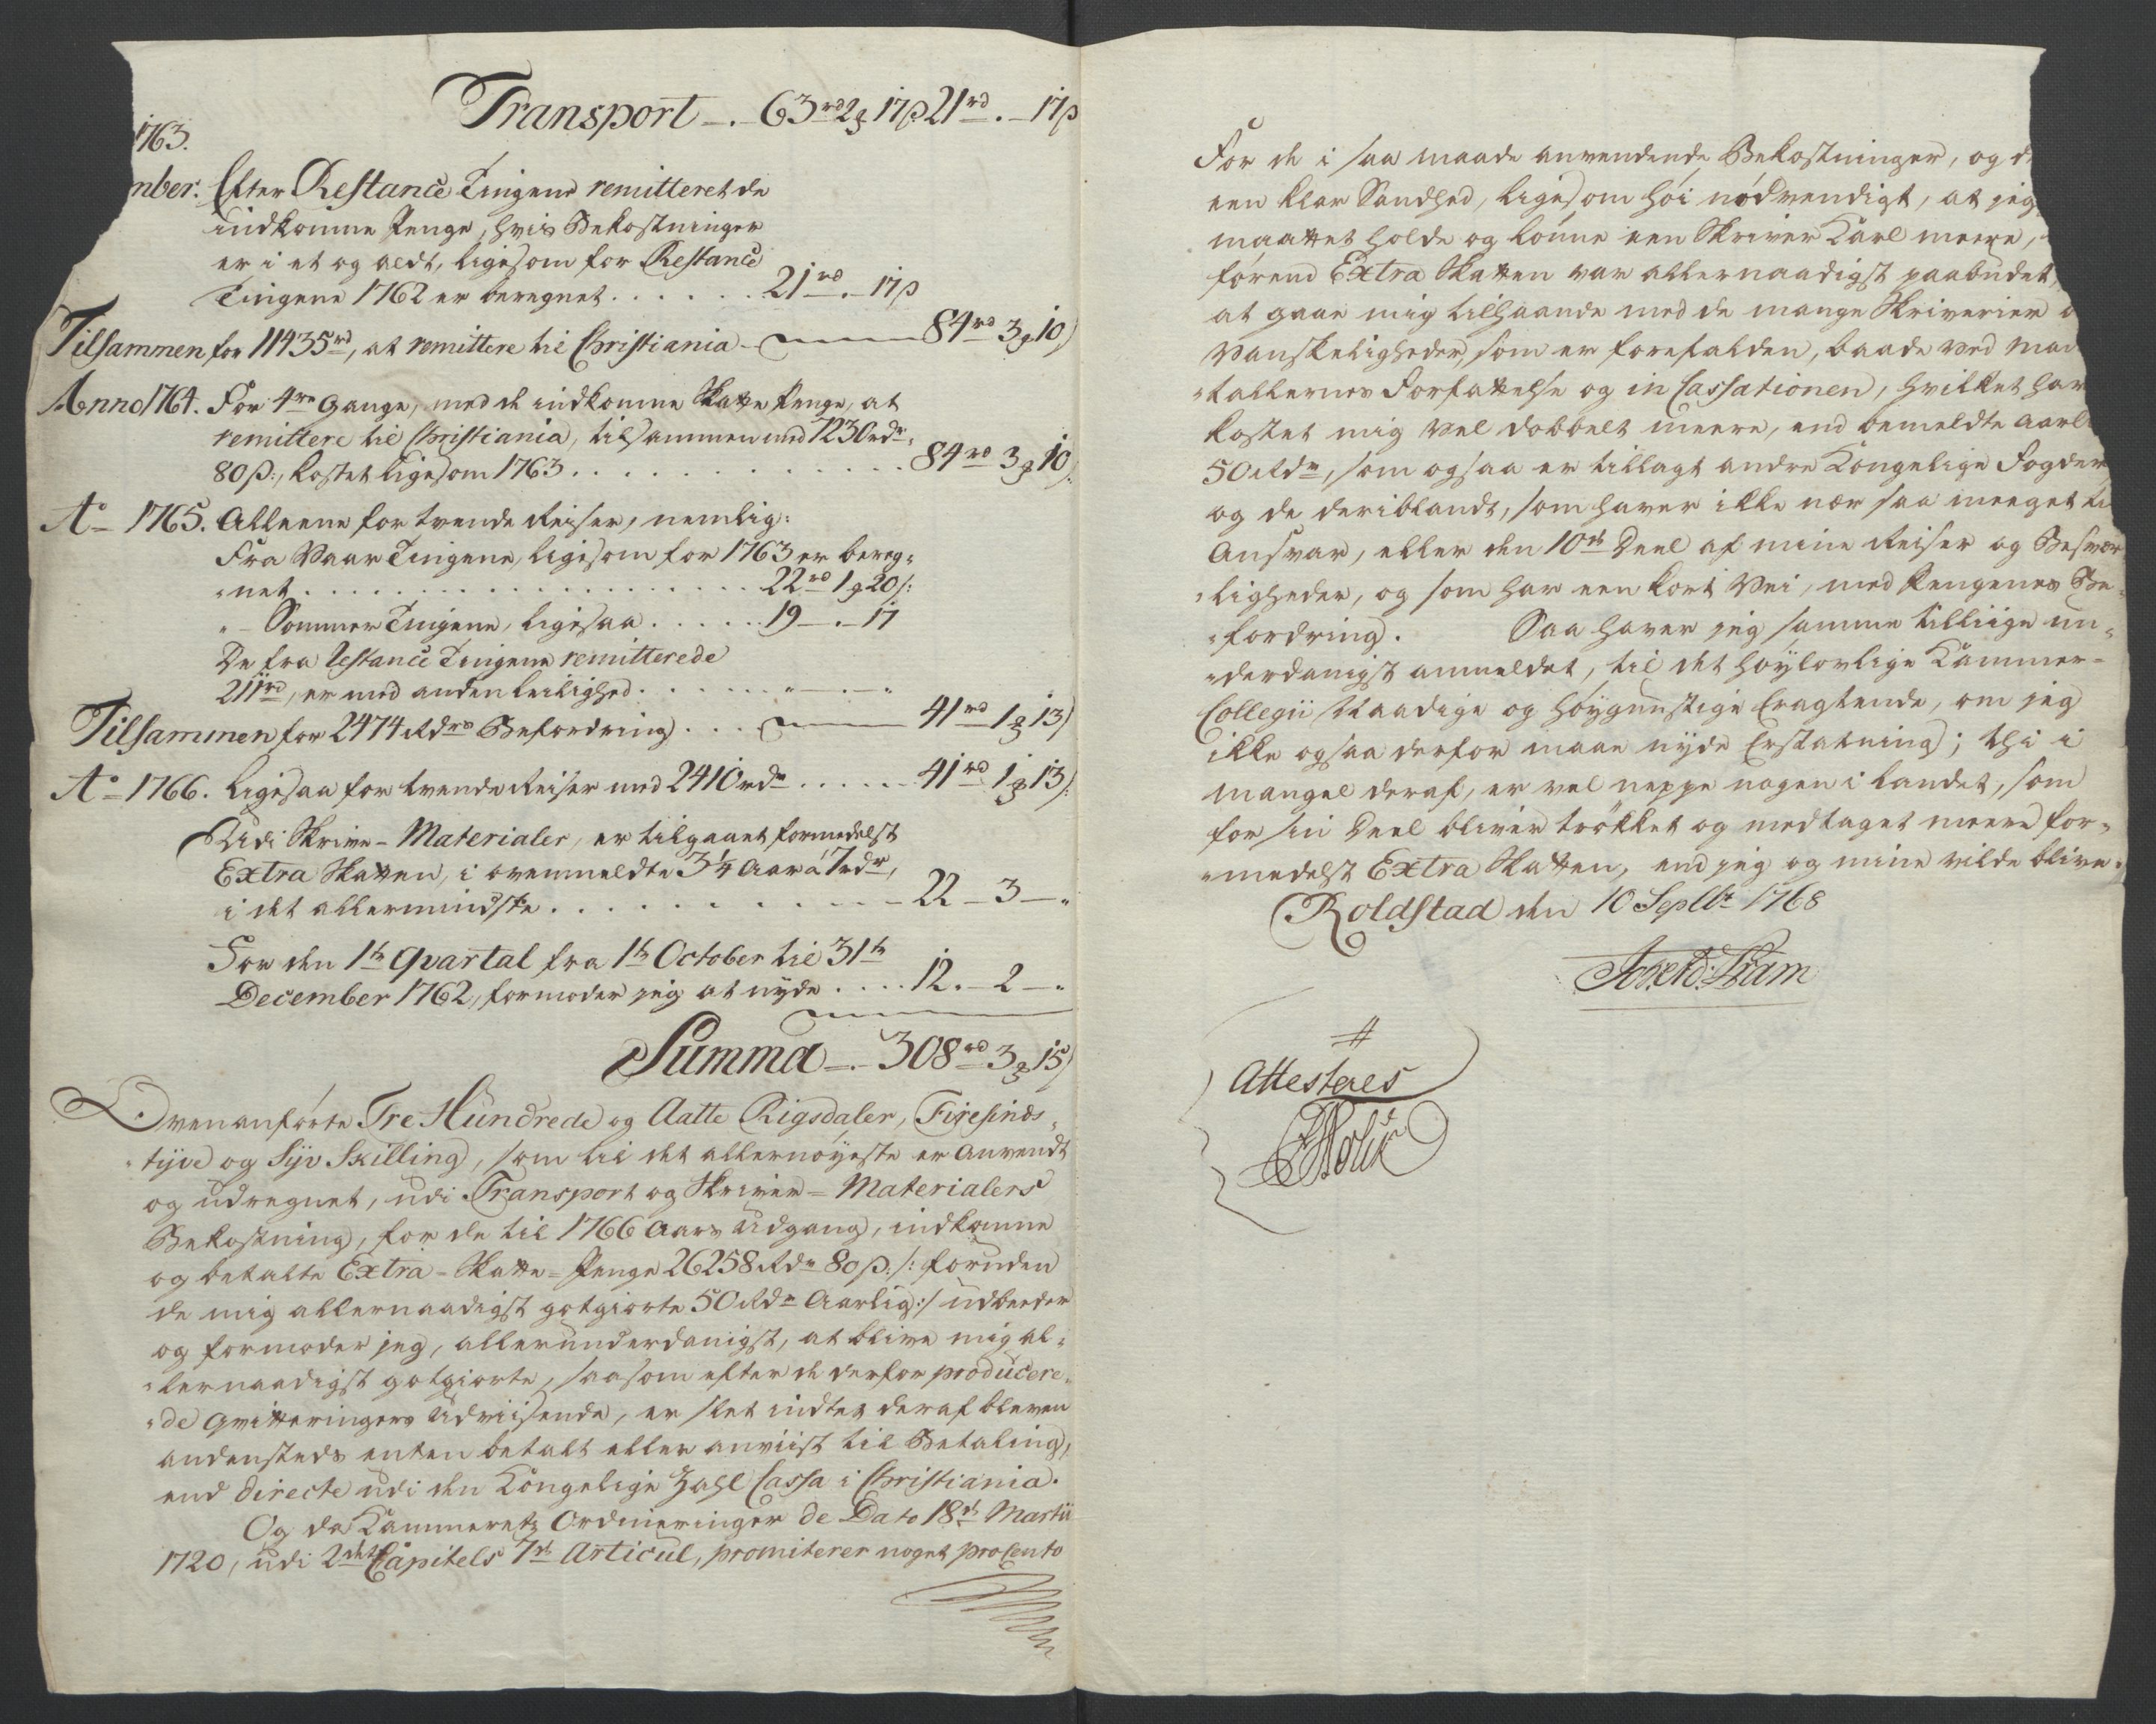 Transport -.- 63rd 2 17ß 21rd . - 17ß
1763.
mber. Efter Restance Tingene remitteret de
indkomne Penge, hvis Bekostninger
er i et og aldt, ligesom for Restance
Tingene 1762 er beregnet . . . . . . 21rd . - 17ß
Tilsammen for 11435rd, at remittere til Christiania - 84rd 3 10
Anno 1764. For 4re Gange, med de indkomne Skatte Penge, at
remittere til Christiania, tilsammen med 7230rdr
80ß:, kostet ligesom 1763 . . . . . . . . . . . . 84rd 3 10
Ao 1765. Alleene for tvende Reiser, nemlig:
Fra Vaar Tingene, ligesom for 1763 er bereg„
„net . . . . . . . . . . . . . . . . . . . 22rd 1 20
„- Sommer Tingene, ligesaa . . . . . 19 - . - 17
De fra Restance Tingene remitterede
211rd, er med anden Leilighed . . . . . . „ - . - „
Tilsammen for 2474 Rdrs Befordring . . . 41rd 1 13
Ao 1766. Ligesaa for tvende Reiser med 2410rdr . . . . . . 41rd 1 13
Udi Skrive-Materialer, er tilgaaet formedelst
Extra Skatten, i ovenmeldte 3¼ Aar á 7rdr,
i det allermindste . . . . . . . . . . . . - 22 - 3 - „
For den 1te Qvartal fra 1te October til 31te
December 1762, formoder jeg at nyde . . . . 12. - 2 - .
Summa -.- 308rd 3 15
Ovenanførte Tre Hundrede og Aatte Rigsdaler, Firesinds„
„tyve og Syv Skilling, som til det allernøyeste er Anvendt
og udregnet, udi Transport og Skriver-Materialers
Bekostning, for de til 1766 Aars Udgang, indkomne
og betalte Extra-Skatte-Penge 26258 Rdr 80ß:/: foruden
de mig allernaadigst gotgiorte 50 Rdr Aarlig:/ udbeder
og formoder jeg, allerunderdanigst, at blive mig al„
„lernaadigst gotgiorte, saasom efter de derfor producere„
„de Qvitteringers Udviisende, er slet indtet deraf bleven
andensteds enten betalt eller anviist til Betaling,
end directe udi den Kongelige Zahl Cassa i Christiania.
Og da Kammerets Ordineringer de Dato 18de Martii
1720, udi 2det Capitels 7de Articul, promiterer noget proCento
For de i saa maade anvendende Bekostninger, og d
een klar Sandhed, ligesom høi nødvendigt, at jeg
maattet holde og lønne een Skriver Karl meere,
førend Extra Skatten var allernaadigst paabudet,
at gaae mig tilhaande med de mange Skriverier
Vanskeligheder, som er forefalden, baade ved Man
„tallernes Forfattelse og in Cassationen, hvilket har
kostet mig vel dobbelt meere, end bemeldte Aarl
50 Rdr, som ogsaa er tillagt andre Kongelige Fogder
og de deriblandt, som haver ikke nær saa meeget
Ansvar, eller den 10de Deel af mine Reiser og Besvær
„ligheder, og som har een kort Vei, med Pengenes Be„
„fordring. Saa haver jeg samme tilliige un„
„derdanigst anmeldet, til det høylovlige Kammer-
Collegii Naadige og høygunstige Eragtende, om jeg
ikke ogsaa derfor maae nyde Erstatning; thi i
mangel deraf, er vel neppe nogen i Landet, som
for sin Deel bliver trøkket og medtaget meere for„
„medelst Extra Skatten, end jeg og mine vilde blive.
Roldstad den 10 Septbr 1768
Attesteres